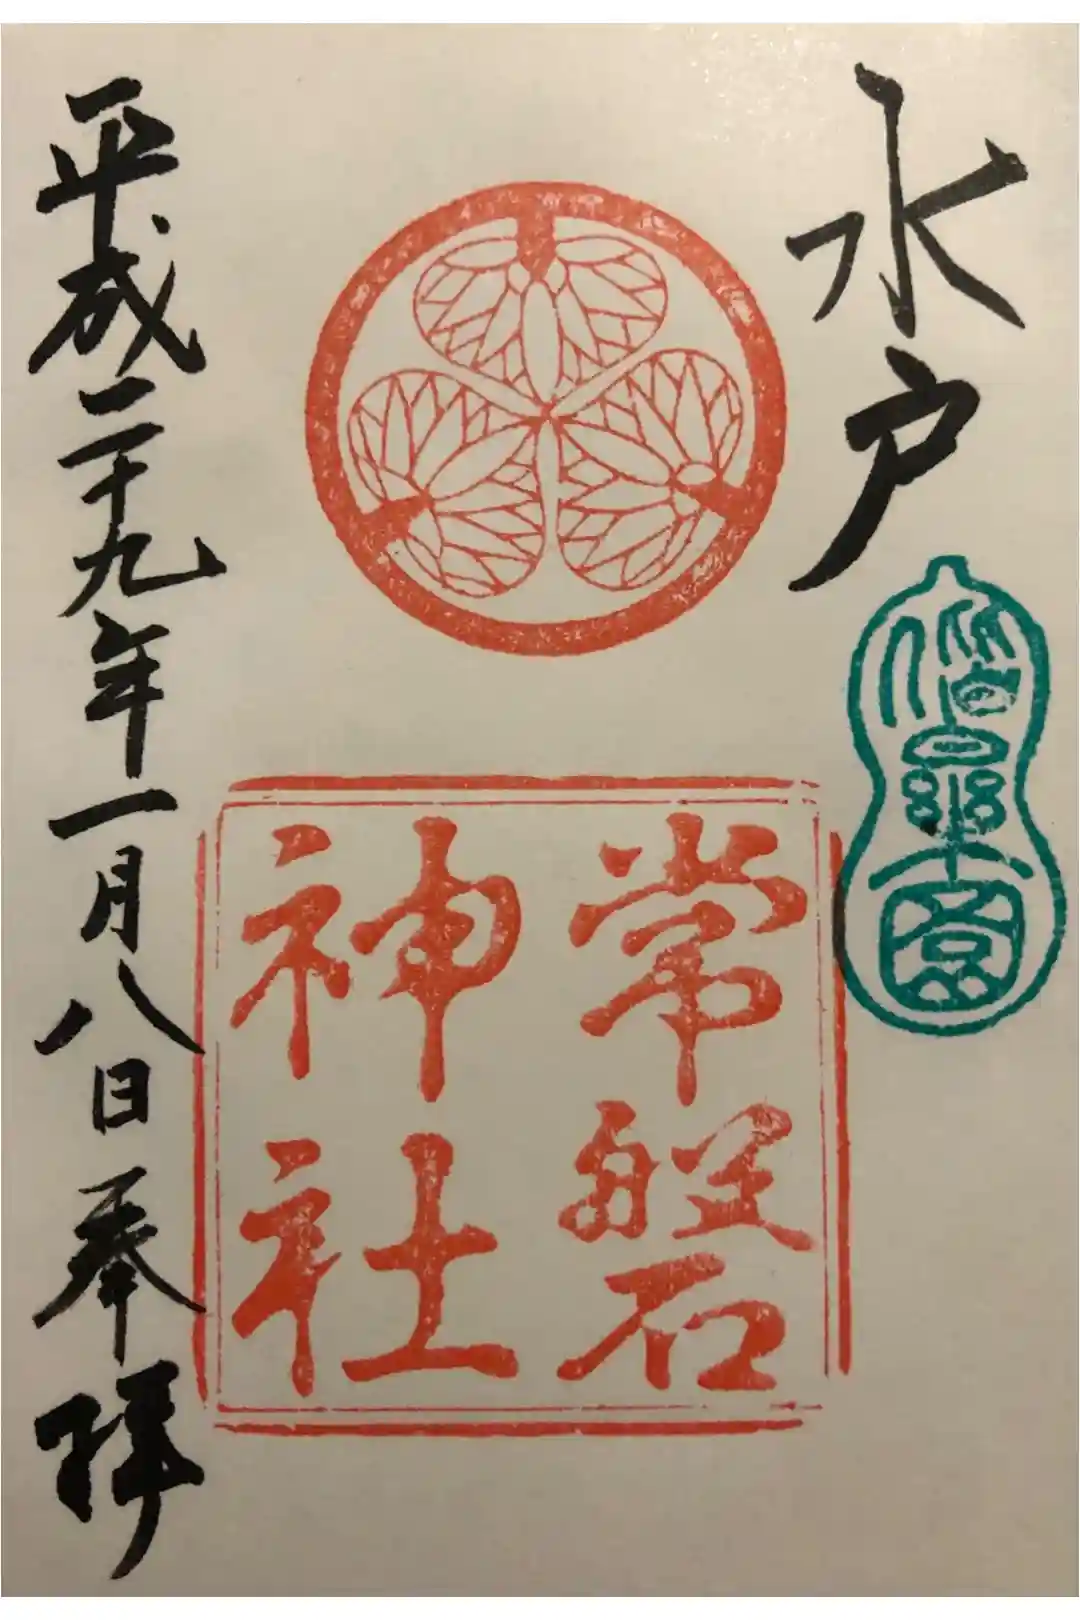 水戸
偕樂園
常磐
神社
平成二十九年一月八日奉拝